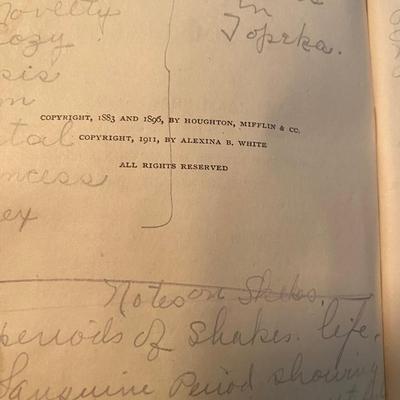 Novelty
Cozy
in
Topeka.
COPYRIGHT, 1883 AND 1896, BY HOUGHTON, MIFFLIN & CO.
COPYRIGHT, 1911, BY ALEXINA B. WHITE
ALL RIGHTS RESERVED
Notes on Shakes.
periods of Shakes. life.
Sanguine Period showing